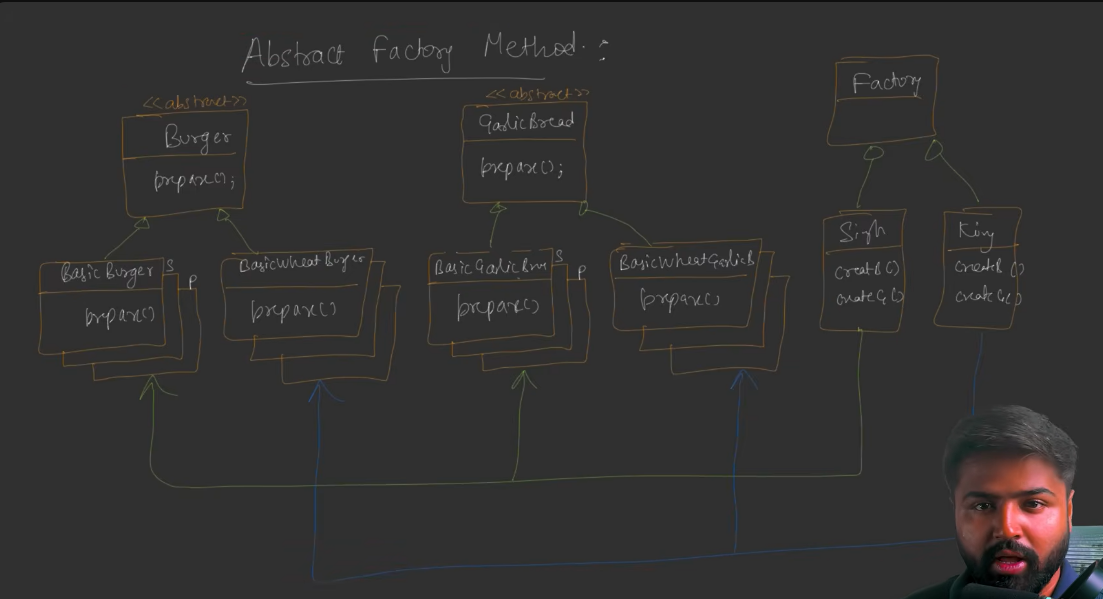 Abstract Factory Method :
<<abstract>>
Burger
prepare();
<<abstract>>
GarlicBread
prepare();
Factory
BasicBurger
prepare()
S
P
BasicWheatBurger
prepare()
BasicGarlicBrea
prepare()
S
P
BasicWheatGarlicB
prepare()
Singh
createB()
createG()
King
createB()
createG()